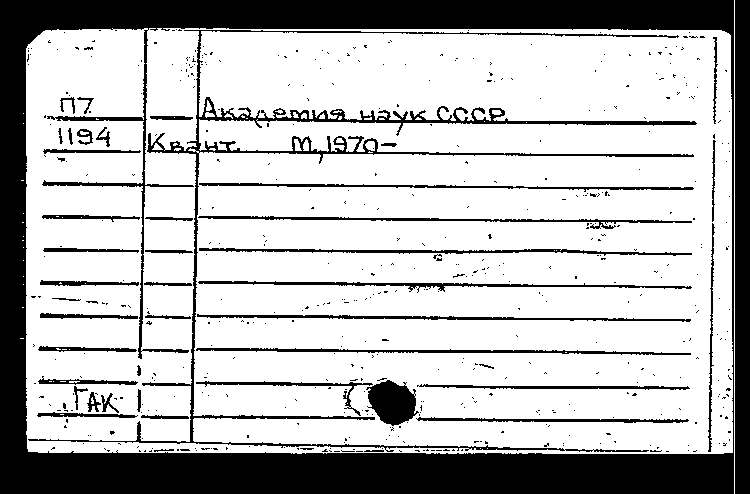 П7 Академия наук СССР.
1194 Квант. М, 1970-
ГАК